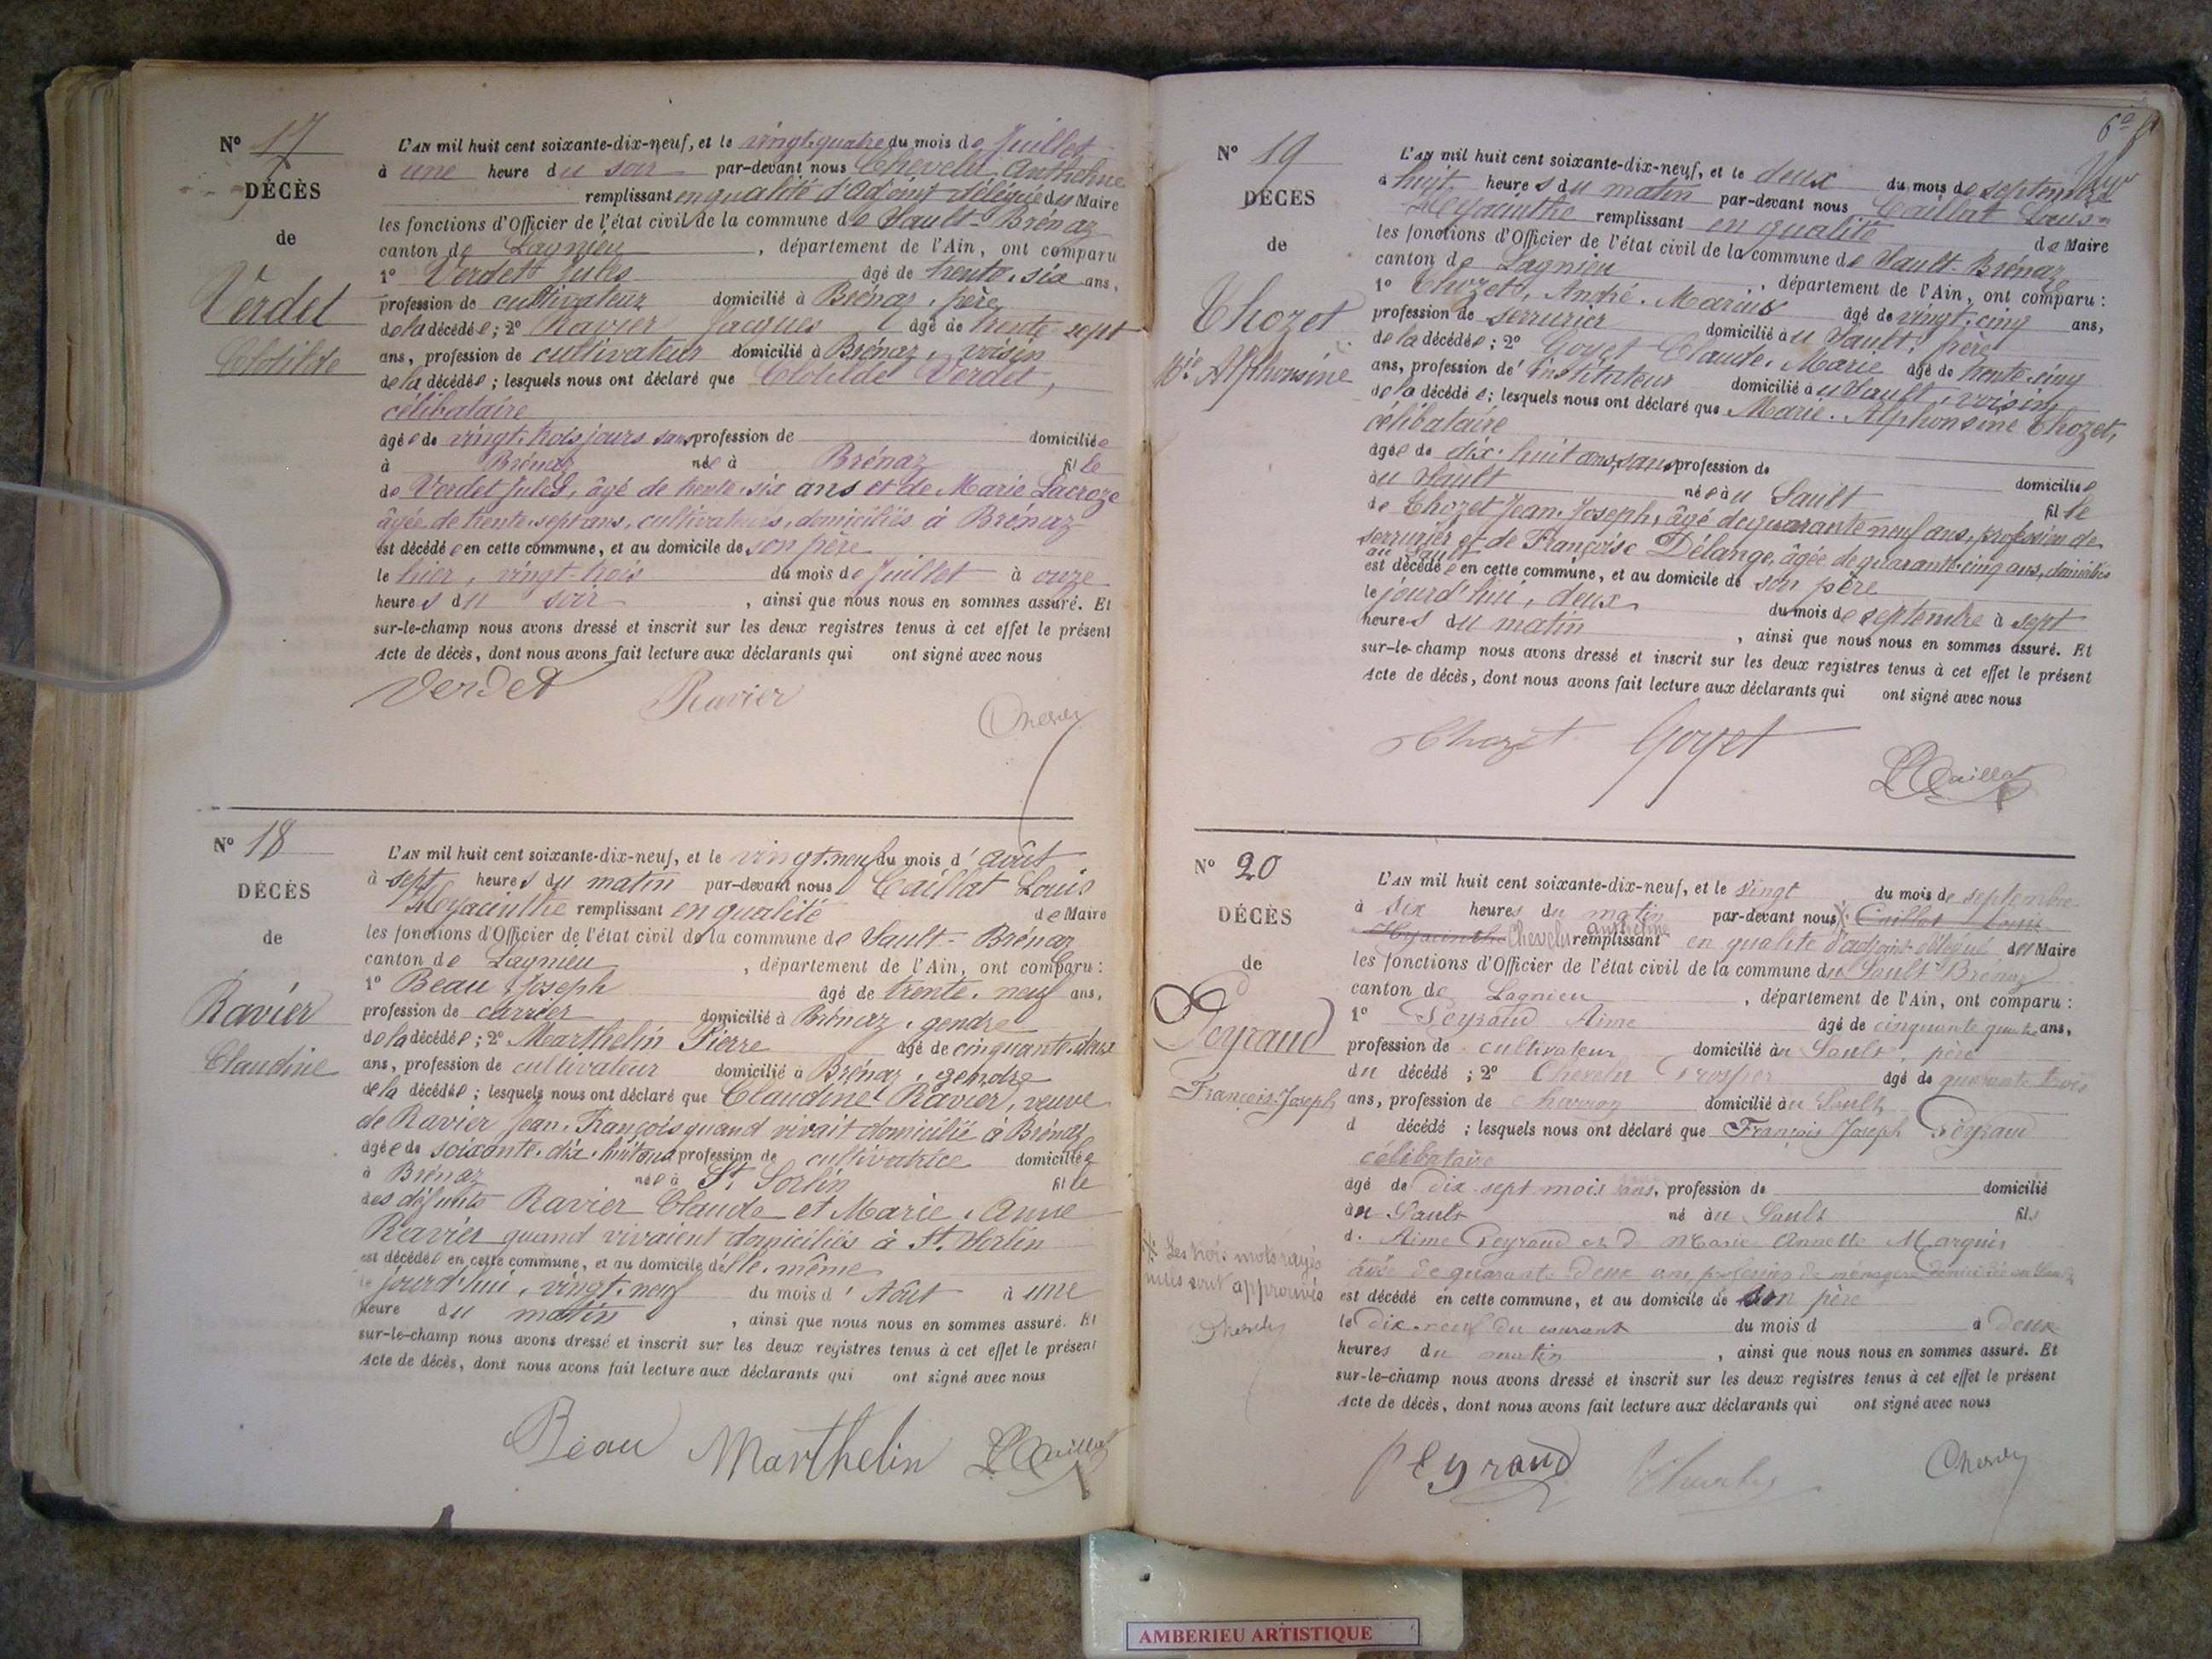 N° 17
DÉCÈS
de
Verdet
Clotilde
L'AN mil huit cent soixante-dix-neuf, et le vingt-quatre du mois de Juillet
à une heure du soir par-devant nous Chevelu, Anthelme
remplissant en qualité d'Adjoint délégué du Maire
les fonctions d'Officier de l'état civil de la commune de Sault-Brénaz
canton de Lagnieu, département de l'Ain, ont comparu
1° Verdet Jules âgé de trente-six ans,
profession de cultivateur domicilié à Brénaz, père
de la décédée; 2° Ravier Jacques âgé de trente-sept
ans, profession de cultivateur domicilié à Brénaz, voisin
de la décédée; lesquels nous ont déclaré que Clotilde Verdet,
célibataire
âgée de vingt-trois jours sans profession de domiciliée
à Brénaz née à Brénaz fille
de Verdet Jules, âgé de trente-six ans et de Marie Lacroze
âgée de trente-sept ans, cultivateurs, domiciliés à Brénaz
est décédée en cette commune, et au domicile de son père
le hier, vingt-trois du mois de Juillet à onze
heures du soir, ainsi que nous nous en sommes assuré. Et
sur-le-champ nous avons dressé et inscrit sur les deux registres tenus à cet effet le présent
Acte de décès, dont nous avons fait lecture aux déclarants qui ont signé avec nous
Verdet Ravier Chevelu
N° 18
DÉCÈS
de
Ravier
Claudine
L'AN mil huit cent soixante-dix-neuf, et le vingt-neuf du mois d'août
à sept heures du matin par-devant nous Caillat Louis
Hyacinthe remplissant en qualité de Maire
les fonctions d'Officier de l'état civil de la commune de Sault-Brénaz
canton de Lagnieu, département de l'Ain, ont comparu:
1° Beau Joseph âgé de trente-neuf ans,
profession de carrier domicilié à Brénaz, gendre
de la décédée; 2° Marthelin Pierre âgé de cinquante-deux
ans, profession de cultivateur domicilié à Brénaz, gendre
de la décédée; lesquels nous ont déclaré que Claudine Ravier, veuve
de Ravier Jean-François quand vivait domicilié à Brénaz
âgée de soixante-dix-huit ans profession de cultivatrice domiciliée
à Brénaz née à St Sorlin fille
des défunts Ravier Claude et Marie-Anne
Ravier quand vivaient domiciliés à St. Sorlin
est décédée en cette commune, et au domicile d'elle-même
le jourd'hui, vingt-neuf du mois d'Août à une
heure du matin, ainsi que nous nous en sommes assuré. Et
sur-le-champ nous avons dressé et inscrit sur les deux registres tenus à cet effet le présent
Acte de décès, dont nous avons fait lecture aux déclarants qui ont signé avec nous
Beau Marthelin L Caillat
N° 19
DÉCÈS
de
Chozet
Mie Alphonsine
L'AN mil huit cent soixante-dix-neuf, et le deux du mois de septembre
à huit heures du matin par-devant nous Caillat Louis-
Hyacinthe remplissant en qualité de Maire
les fonctions d'Officier de l'état civil de la commune de Sault-Brénaz
canton de Lagnieu, département de l'Ain, ont comparu:
1° Chozet, André-Marius âgé de vingt-cinq ans,
profession de serrurier domicilié au Sault, père
de la décédée; 2° Goyet Claude-Marie âgé de trente-cinq
ans, profession d'instituteur domicilié au Sault, voisin
de la décédée; lesquels nous ont déclaré que Marie-Alphonsine Chozet,
célibataire
âgée de dix-huit ans, sans profession de domiciliée
au Sault née au Sault fille
de Chozet Jean-Joseph, âgé de quarante neuf ans, profession de
serrurier et de Françoise Délange, âgée de quarante-cinq ans, domiciliés
au Sault
est décédée en cette commune, et au domicile de son père
le jourd'hui, deux du mois de septembre à sept
heures du matin, ainsi que nous nous en sommes assuré. Et
sur-le-champ nous avons dressé et inscrit sur les deux registres tenus à cet effet le présent
Acte de décès, dont nous avons fait lecture aux déclarants qui ont signé avec nous
Chozet Goyet L Caillat
N° 20
DÉCÈS
de
Peyraud
François-Joseph
L'AN mil huit cent soixante-dix-neuf, et le vingt du mois de septembre
à six heures du matin par-devant nous Caillat Louis
Hyacinthe Chevelu Anthelme remplissant en qualité d'adjoint délégué du Maire
les fonctions d'Officier de l'état civil de la commune du Sault-Brénaz
canton de Lagnieu, département de l'Ain, ont comparu:
1° Peyraud Aimé âgé de cinquante quatre ans,
profession de cultivateur domicilié au Sault, père
du décédé; 2° Chevelu Prosper âgé de quarante trois
ans, profession de charron domicilié au Sault
d décédé; lesquels nous ont déclaré que François Joseph Peyraud
célibataire
âgé de dix-sept mois sans, profession de domicilié
au Sault né au Sault fils
d. Aimé Peyraud et d Marie Annette Marquis
âgée de quarante deux ans profession de ménagère domiciliés au Sault
est décédé en cette commune, et au domicile de son père
le dix-neuf du courant du mois d à deux
heures du matin, ainsi que nous nous en sommes assuré. Et
sur-le-champ nous avons dressé et inscrit sur les deux registres tenus à cet effet le présent
Acte de décès, dont nous avons fait lecture aux déclarants qui ont signé avec nous
Les trois mots rayés
nuls sont approuvés
Chevelu
Peyraud Chevelu Chevelu
AMBERIEU ARTISTIQUE